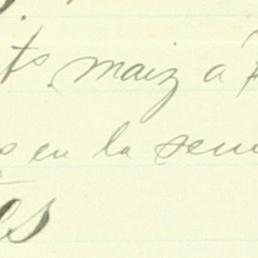 ts. maiz á
s en la sem
es